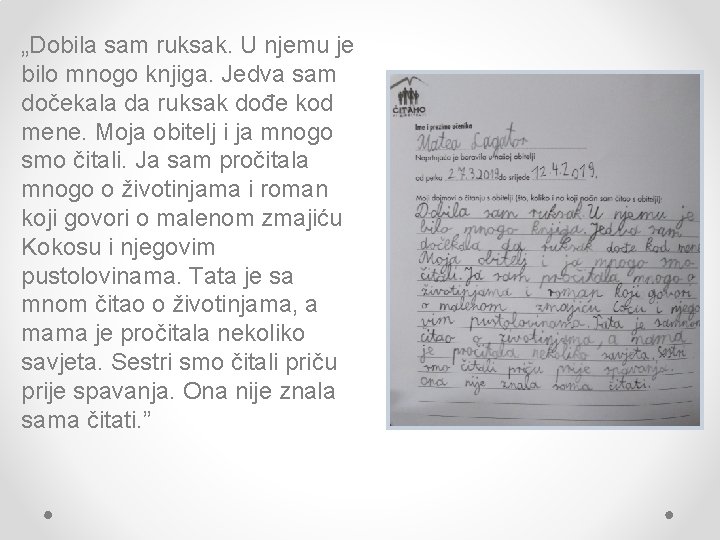 „Dobila sam ruksak. U njemu je
bilo mnogo knjiga. Jedva sam
dočekala da ruksak dođe kod
mene. Moja obitelj i ja mnogo
smo čitali. Ja sam pročitala
mnogo o životinjama i roman
koji govori o malenom zmajiću
Kokosu i njegovim
pustolovinama. Tata je sa
mnom čitao o životinjama, a
mama je pročitala nekoliko
savjeta. Sestri smo čitali priču
prije spavanja. Ona nije znala
sama čitati.”
ČITAMO
Ime i prezime učenika
Matea Lagator
Naprtnjača je boravila u našoj obitelji
od petka 2.7.3.2019. do srijede 12.4.2019.
Moji dojmovi o čitanju s obitelji (što, koliko i na koji način sam čitao s obitelji):
Dobila sam ruksak. U njemu je
bilo mnogo knjiga. Jedva sam
dočekala da ruksak dođe kod mene
Moja obitelj i ja mnogo smo
čitali. Ja sam pročitala mnogo o
životinjama i roman koji govori
o malenom zmajiću i njego
vim pustolovinama. Tata je samnom
čitao o životinjama, a mama
je pročitala nekoliko savjeta. Sestri
smo čitali priču prije spavanja.
Ona nije znala sama čitati.